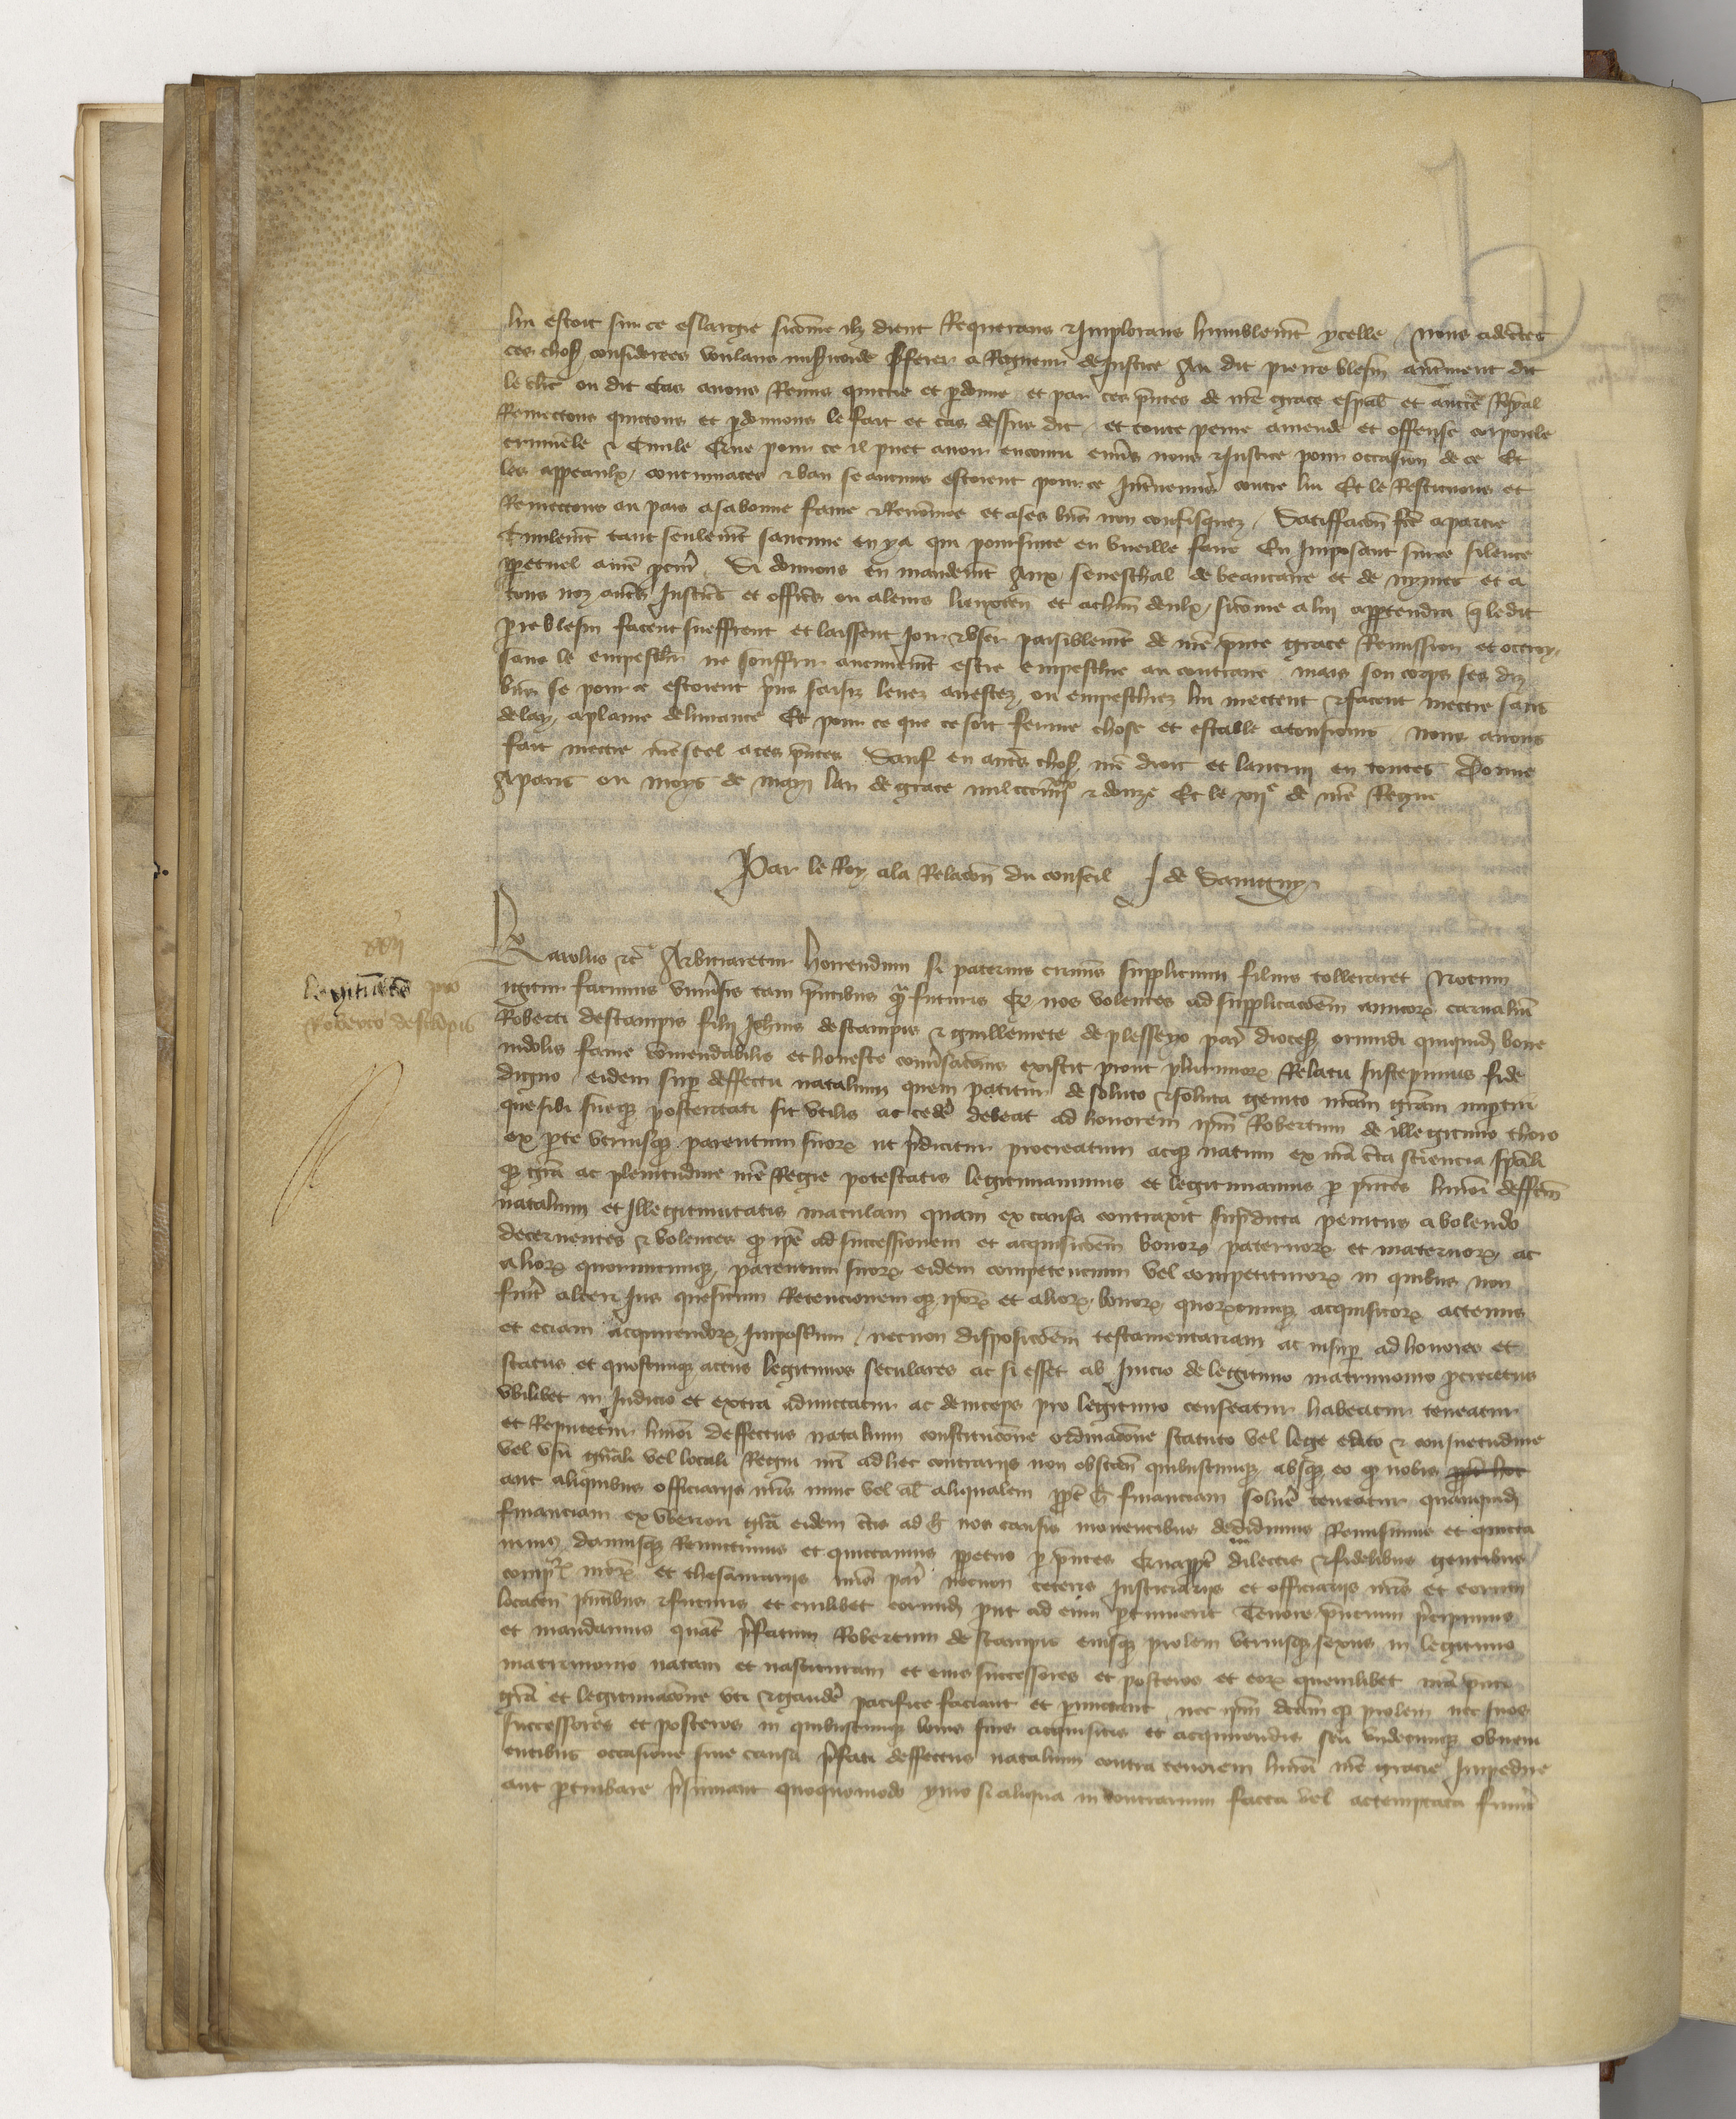 lui estoit sur ce eslargie sicomme ilz dient Requerans & Implorans humblemt ycelle / nous adcertes
ces choses considerees voulans misericorde preferer a Rigueur de Justice Au dit pierre blesin autrement dit
le clerc ou dit Cas avons Remis quictie et pdonne et par ces pntes de nre grace espal et auctte Royal
Remectons quictons et pdonnons le fait et cas dessus dit / et toute peine amende et offense corporele
criminele & Civile Que pour ce il puet avoir encouru envers nous & Justice pour occasion de ce Et
les appeaulx / contumaces & ban se aucuns estoient pour ce Intervenus contre lui Et le Restituons et
Remectons au pais a sa bonne fame & Renommee et a ses biens non confisquez / Satiffaccon fte a partie
Civilemt tant seulemt saucune en y a qui poursuite en vueille faire En Imposant sur ce silence
ppetuel a nre pcur / Si donnons en mandemt Aux seneschal de beaucaire et de nymes et a
tous noz autres Justiciers et officiers ou a leurs lieuxten et a chun deulx / sicomme a lui apptendra q ledit
pierre blesin facent sueffrent et laissent Joir & user paisiblemt de nre pnte grace Remission et ottroy
sans le empeschier ne souffrir aucunemt estre empeschie au contraire mais son corps ses diz
biens se pour ce estoient pris saisiz levez arrestez ou empeschiez lui mectent & facent mectre sans
delay / a plaine delivrance Et pour ce que ce soit ferme chose et estable a tousjours Nous avons
fait mectre nre seel a ces pntes Sauf en autres choses nre droit et lautruy en toutes Donne
A paris ou moys de may lan de grace mil ccc iiiixx & douze Et le xiie de nre Regne
Par le Roy a la Relacon du conseil J de Sanctigny
xvij
legitimaco pro
Roberto de stampis
Karolus &c Arbitraretur horrendum si paterni criminis supplicium filius tolleraret Notum
igitur facimus universis tam pntibus q futuris Q nos volentes ad supplicacoem amicor carnaliu
Roberti destampis filij Johnis destampis & guillemete de plesseyo par dioces oriundi quiquid bone
indolis fame comendabilis et honeste conversaconis existit prout plurimor Relatu suscepimus fide
digno / eidem sup deffectu natalium quem patitur de soluto & soluta genito nram gram impertiri
que sibi sueq posteritati sit utilis ac cede debeat ad honorem ipm Robertum de illegitimo thoro
ex pte utriusq parentum suor ut pdicitur procreatum atq natum ex nra cta sciencia spali
q gra ac plenitudine nre Regie potestatis legitimavimus et legitimamus p pntes huiusmoi deffectum
natalium et Illegitimitatis maculam quam ex causa contraxit supradicta penitus abolendo
decernentes & volentes q ipe ad successionem et acquisicoem bonor paternor et maternor ac
alior quorumcunq parentum suor eidem competencium vel competituror in quibus non
fuit alteri Jus quesitum Retencionem q ipor et alior bonor quorumcunq acquisitor actenus
et eciam acquirendor Imposterum / necnon disposicoem testamentariam ac insup ad honores et
status et quoscunq actus legitimos seculares ac si esset ab Inicio de legitimo matrimonio procreatus
ubilibet in Iudicio et extra admittatur ac deinceps pro legitimo censeatur habeatur teneatur
et Reputetur huiusmoi deffectus natalium constitucone ordinacone statuto vel lege edito & consuetudine
vel usu gnali vel locali Regni nri ad hec contrarijs non obstan quibuscunq absq eo q nobis ppt hoc
aut aliquibus officiarijs nris nunc vel al aliqualem ppt h financiam solve teneatur quamquid
financiam ex uberiori gra eidem ctis ad h nos causis moventibus dedimus Remisimus et quicta
vimus damusq Remittimus et quictamus ppetuo p pntes Quapropt dilectis & fidelibus gentibus
compor nror et thesaurarijs nris par necnon ceteris Justiciarijs et officiarijs nris et eorum
locaten pntibus & futuris et cuilibet eorumd put ad eum ptinuerit Tenore pncium pcipimus
et mandamus quat pfatum Robertum de stampis eiusq prolem utriusq sexus in legitimo
matrimonio natam et nascituram et eius successores et posteros et eor quemlibet nra pnti
gra et legitimacone uti & gaude pacifice faciant et pmictant / nec ipm dcamq prolem nec suos
successores et posteros in quibuscunq bonis suis acquisitis et acquirendis seu undecunq obveni
entibus occasione sive causa pfati deffectus natalium contra tenorem huiusmoi nre gracie Impedire
aut pturbare psumant quoquomodo ymo si aliqua in contrarium facta vel actemptata fuerit